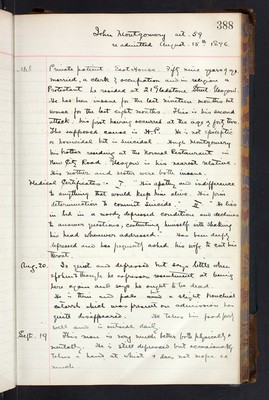 388
John Montgomery aet. 59
readmitted August 15th 1896.
Private patient. East House. Fifty nine years of age
married, a clerk by occupation and in religion a
Protestant he resided at 21 Gladstone Street Glasgow.
He has been insane for the last nineteen months but
worse for the last eight months. This is his second
attack, his first having occurred at the age of forty two.
The supposed cause is H.P. He is not epileptic
or homicidal but is suicidal. Hugh Montgomery
his brother residing at the Normal Restaurant in
New City Road Glasgow is his nearest relative.
His mother and sister were both insane.
Medical Certificates:- I. His apathy and indifference
to anything that would keep him alive. His firm
determination to commit suicide. II. He lies
in bed in a moody depressed condition and declines
to answer questions, contenting himself with shaking
his head whenever addressed. Has been deeply
depressed and has frequently asked his wife to cut his
throat.
Aug. 20. Is quiet and depressed but says little when
spoken to though he expresses resentment at being
here again and says he ought to be dead.
He is thin and pale and a slight bronchial
catarrh which was present on admission has
quite disappeared. He takes his food fairly
well and is outside daily.
Sept. 19 This man is very much better both physically &
mentally. He is still depressed but occasionally
takes a hand at whist & does not mope so
much